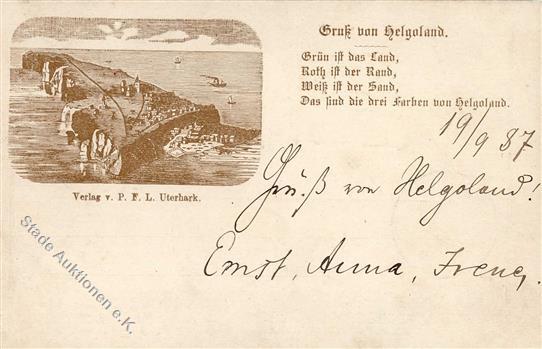 Gruß von Helgoland.
Grün ist das Land,
Roth ist der Rand,
Weiß ist der Sand,
Das sind die drei Farben von Helgoland.
19/9 87
Gruß von Helgoland!
Ernst, Anna, Irene,
Verlag v. P. F. L. Uterhark.
Stade Auktionen e.K.